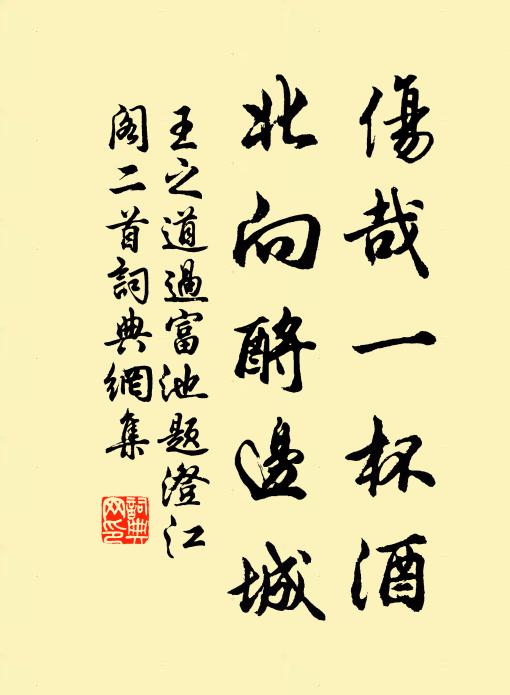 傷哉一杯酒
北向酹邊城
王之道過富池題澄江
閣二首詞典網集
詞典
网印